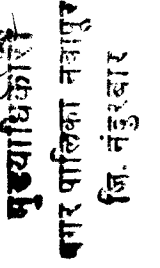 मुख्याधिकारी
नगर पालिका नवापुर
जि. नंदुरबार